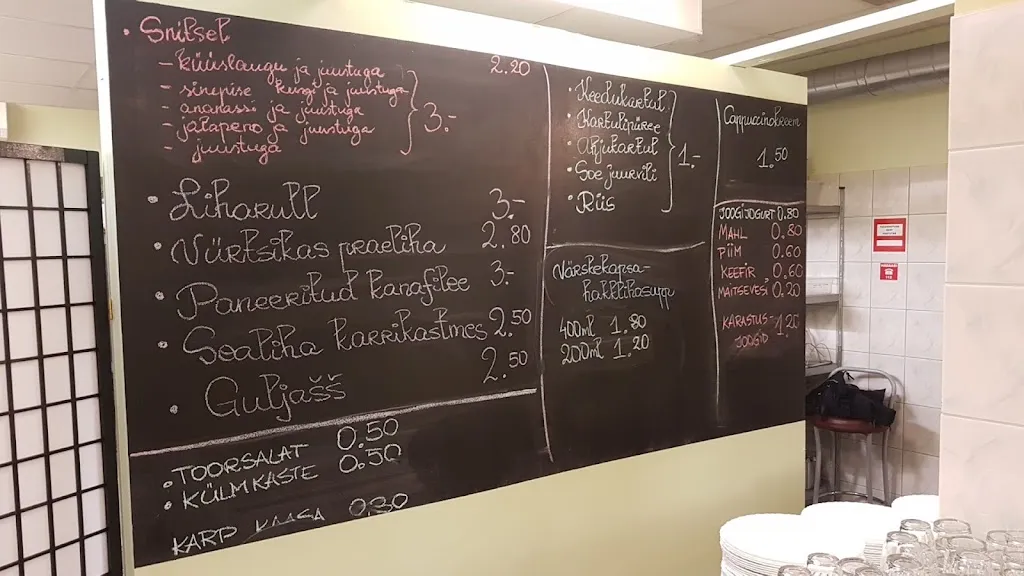 • Snitsel 2.20
- küüslaugu ja juustuga
- sinepise kurgi ja juustuga
- ananassi ja juustuga
- jalapeno ja juustuga
- juustuga
3.-
• Liharull 3.-
• Vürtsikas praeliha 2.80
• Paneeritud kanafilee 3.-
• Sealiha karrikastmes 2.50
• Guljašš 2.50
• TOORSALAT 0.50
• KÜLMKASTE 0.50
KARP KAASA 0.30
• Keedukartul
• Kartulipüree
• Ahjukartul
• Soe juurvili
• Riis
1.-
Värskekapsa-
hakklihasupp
400ml 1.80
200ml 1.20
Cappuccino
1.50
JOOGIJOGURT 0.80
MAHL 0.80
PIIM 0.60
KEEFIR 0.60
MAITSEVESI 0.20
KARASTUS- 1.20
JOOGID